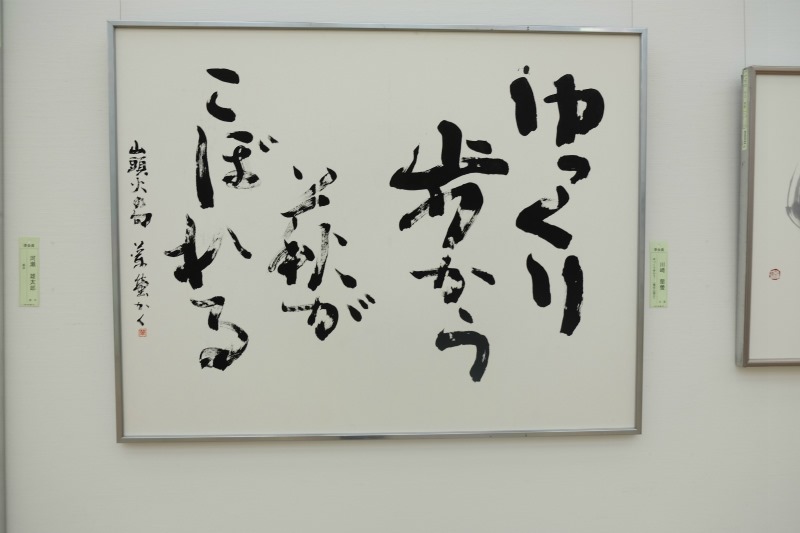 ゆっくり
歩かう
萩が
こぼれる
山頭火の句
かく